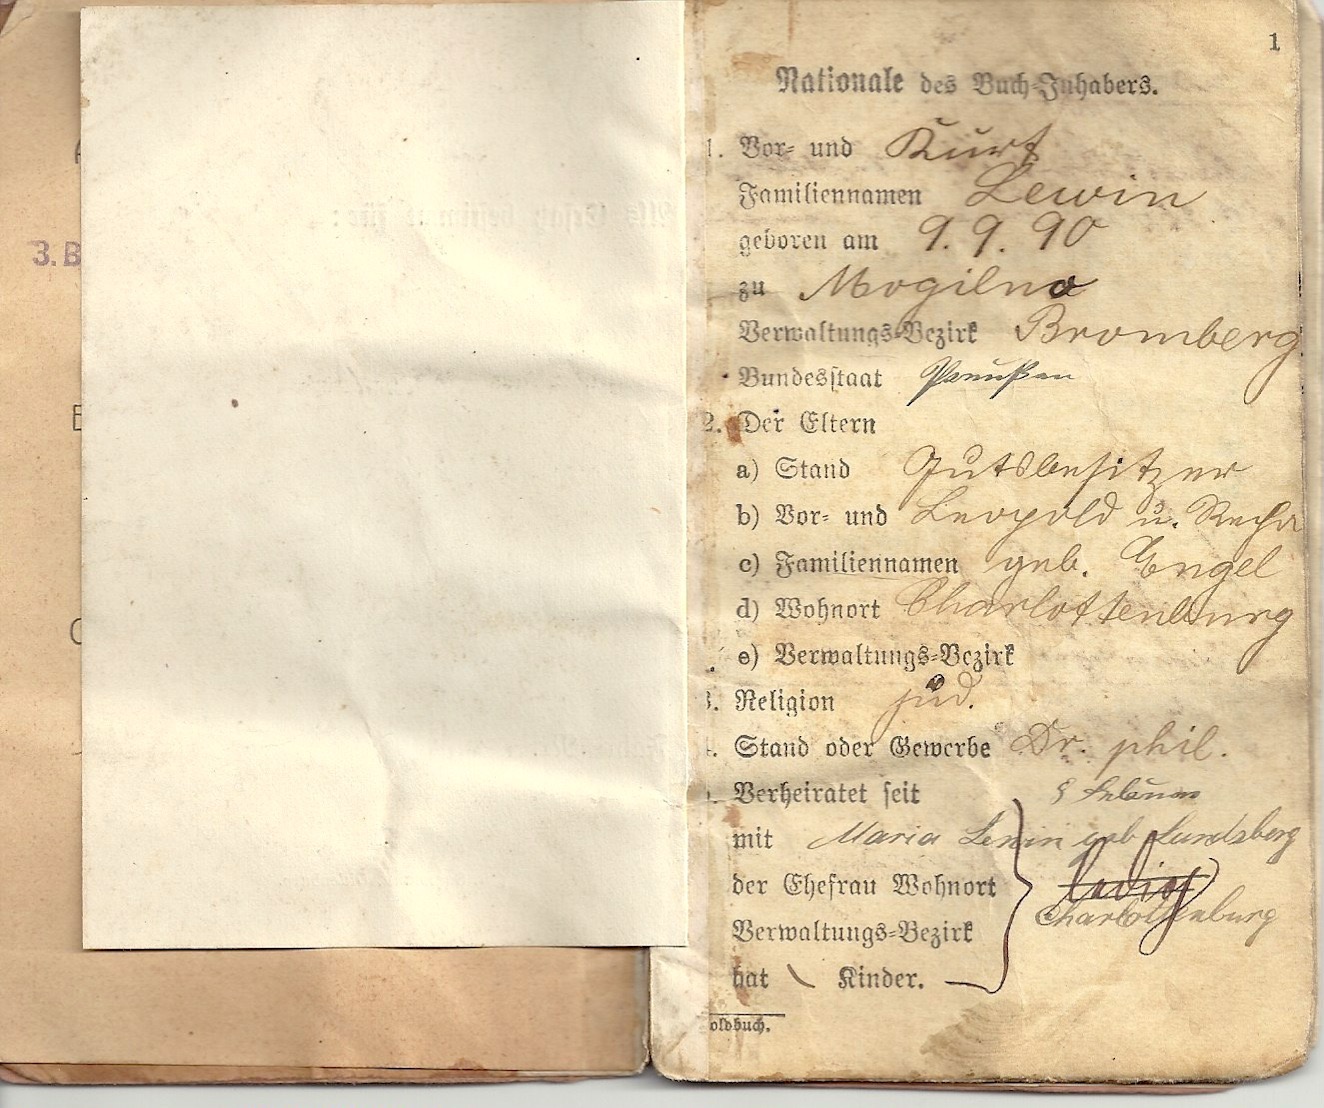 3. B
1
Nationale des Buch-Inhabers.
1. Vor- und Kurt
Familiennamen Lewin
geboren am 9. 9. 90
zu Mogilno
Verwaltungs-Bezirk Bromberg
Bundesstaat Preußen
2. Der Eltern
a) Stand Gutsbesitzer
b) Vor- und Leopold u. Recha
c) Familiennamen geb. Engel
d) Wohnort Charlottenburg
e) Verwaltungs-Bezirk
3. Religion jüd.
4. Stand oder Gewerbe Dr. phil.
Verheiratet seit 8 Februar
mit Maria Lewin geb Landsberg
der Ehefrau Wohnort ledig
Charlottenburg
Verwaltungs-Bezirk
hat Kinder.
oldbuch.